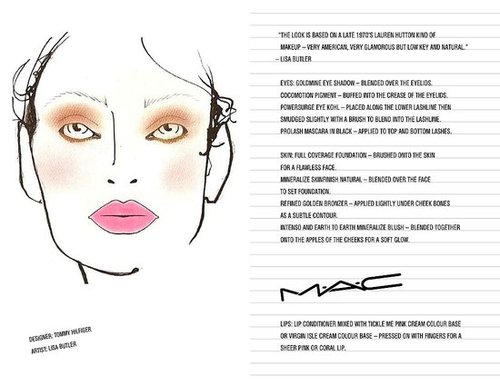 "THE LOOK IS BASED ON A LATE 1970'S LAUREN HUTTON KIND OF
MAKEUP – VERY AMERICAN, VERY GLAMOROUS BUT LOW KEY AND NATURAL."
– LISA BUTLER
EYES: GOLDMINE EYE SHADOW – BLENDED OVER THE EYELIDS.
COCOMOTION PIGMENT – BUFFED INTO THE CREASE OF THE EYELIDS.
POWERSURGE EYE KOHL – PLACED ALONG THE LOWER LASHLINE THEN
SMUDGED SLIGHTLY WITH A BRUSH TO BLEND INTO THE LASHLINE.
PROLASH MASCARA IN BLACK – APPLIED TO TOP AND BOTTOM LASHES.
SKIN: FULL COVERAGE FOUNDATION – BRUSHED ONTO THE SKIN
FOR A FLAWLESS FACE.
MINERALIZE SKINFINISH NATURAL – BLENDED OVER THE FACE
TO SET FOUNDATION.
REFINED GOLDEN BRONZER – APPLIED LIGHTLY UNDER CHEEK BONES
AS A SUBTLE CONTOUR.
INTENSE AND EARTH TO EARTH MINERALIZE BLUSH – BLENDED TOGETHER
ONTO THE APPLES OF THE CHEEKS FOR A SOFT GLOW.
M·A·C
LIPS: LIP CONDITIONER MIXED WITH TICKLE ME PINK CREAM COLOUR BASE
OR VIRGIN ISLE CREAM COLOUR BASE – PRESSED ON WITH FINGERS FOR A
SHEER PINK OR CORAL LIP.
DESIGNER: TOMMY HILFIGER
ARTIST: LISA BUTLER